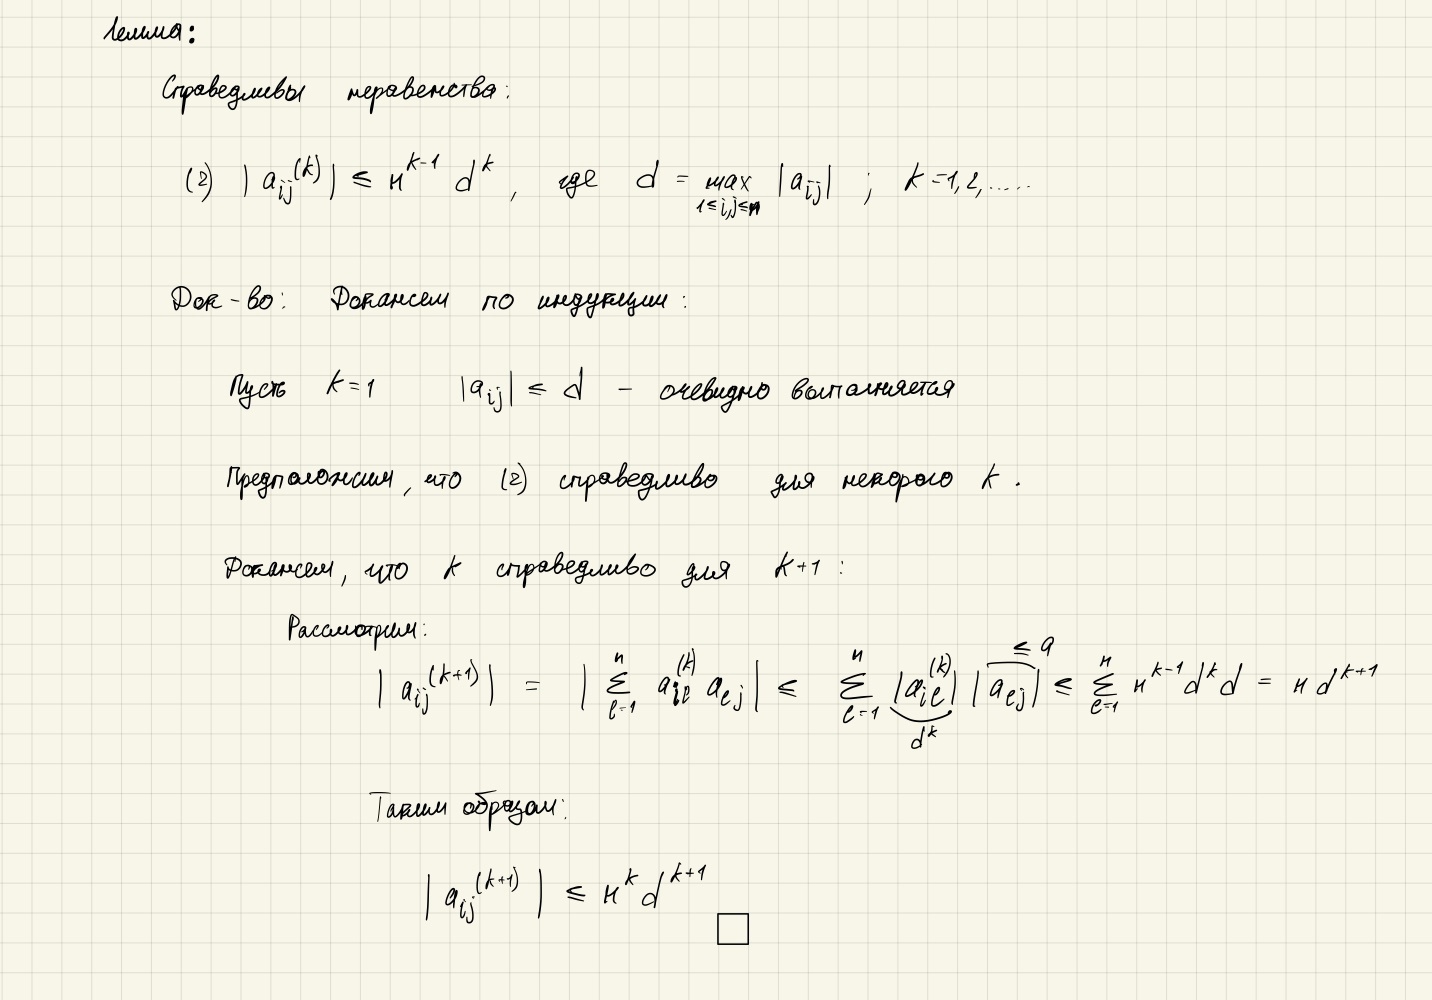 Лемма:
Справедливы неравенства:
(2) | a_{ij}^{(k)} | ≤ n^{k-1} d^k , где d = max_{1≤i,j≤n} |a_{ij}| ; k=1,2,.....
Док-во: Докажем по индукции:
Пусть k=1 |a_{ij}| ≤ d – очевидно выполняется
Предположим, что (2) справедливо для некорого k.
Докажем, что k справедливо для k+1 :
Рассмотрим:
≤ a
| a_{ij}^{(k+1)} | = | Σ_{l=1}^{n} a_{il}^{(k)} a_{lj} | ≤ Σ_{l=1}^{n} |a_{il}^{(k)}| |a_{lj}| ≤ Σ_{l=1}^{n} n^{k-1} d^k d = n d^{k+1}
d^k
Таким образом:
| a_{ij}^{(k+1)} | ≤ n^k d^{k+1}
□